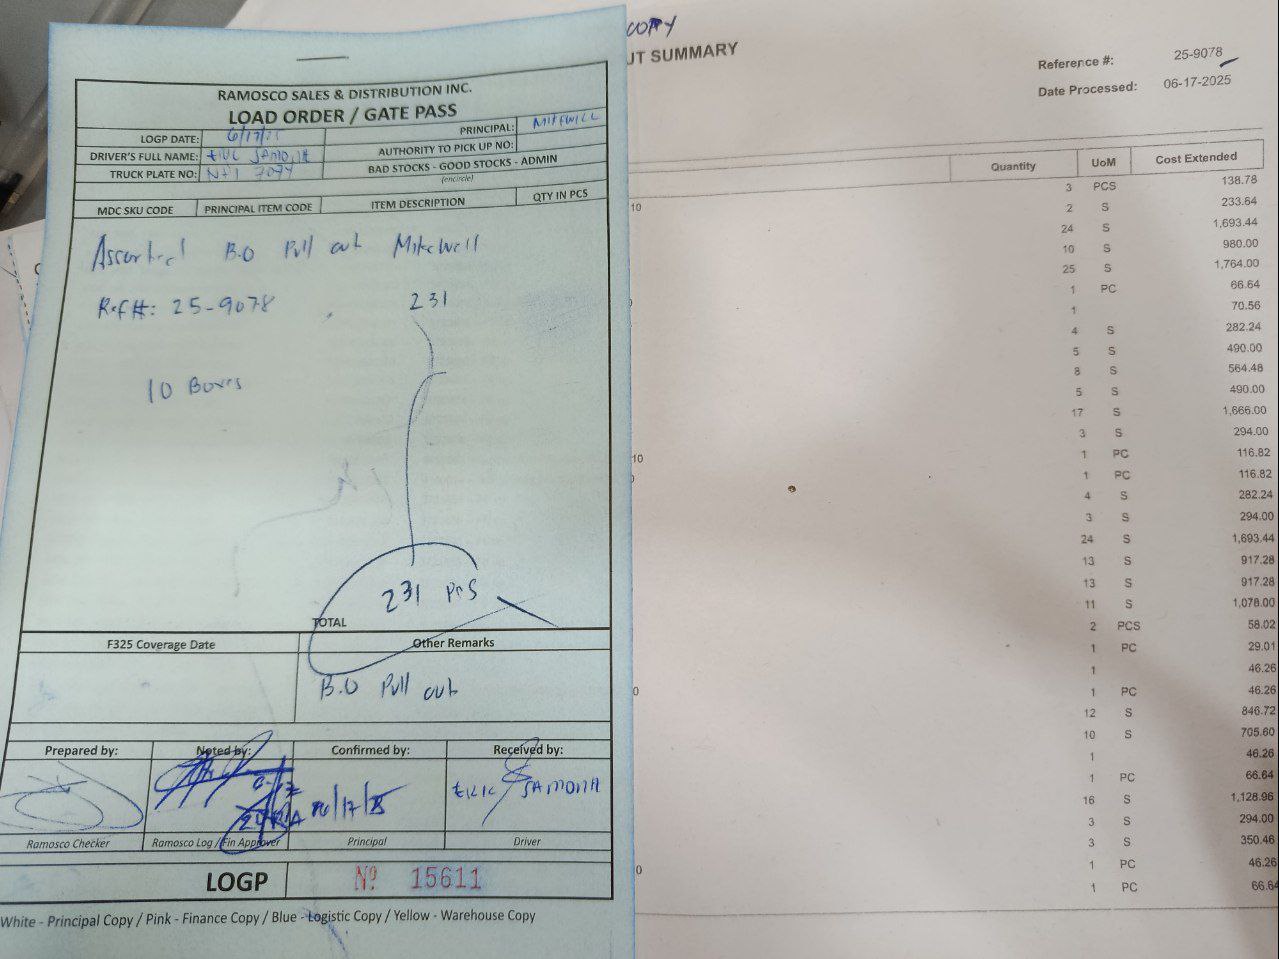 RAMOSCO SALES & DISTRIBUTION INC.
LOAD ORDER / GATE PASS
LOGP DATE: 6/17/25 PRINCIPAL: MITEWELL
DRIVER'S FULL NAME: ERIC SAMONTE AUTHORITY TO PICK UP NO:
TRUCK PLATE NO: BAD STOCKS - GOOD STOCKS - ADMIN
(encircle)
MDC SKU CODE PRINCIPAL ITEM CODE ITEM DESCRIPTION QTY IN PCS
Assorted B.O Pull out Mitewell
Ref#: 25-9078 231
10 Boxes
231 PCS
TOTAL
F325 Coverage Date Other Remarks
B.O Pull out
Prepared by: Noted by: Confirmed by: Received by:
6/17/25 ERIC
Ramosco Checker Ramosco Log / Fin Approver Principal Driver
LOGP Nº 15611
White - Principal Copy / Pink - Finance Copy / Blue - Logistic Copy / Yellow - Warehouse Copy
COPY
UT SUMMARY
Reference #: 25-9078
Date Processed: 06-17-2025
Quantity UoM Cost Extended
10 3 PCS 138.78
2 S 233.64
24 S 1,693.44
10 S 980.00
25 S 1,764.00
1 PC 66.64
1 70.56
4 S 282.24
5 S 490.00
8 S 564.48
5 S 490.00
17 S 1,666.00
3 S 294.00
10 1 PC 116.82
1 PC 116.82
4 S 282.24
3 S 294.00
24 S 1,693.44
13 S 917.28
13 S 917.28
11 S 1,078.00
2 PCS 58.02
1 PC 29.01
1 46.26
0 1 PC 46.26
12 S 846.72
10 S 705.60
1 46.26
1 PC 66.64
16 S 1,128.96
3 S 294.00
3 S 350.46
0 1 PC 46.26
1 PC 66.64